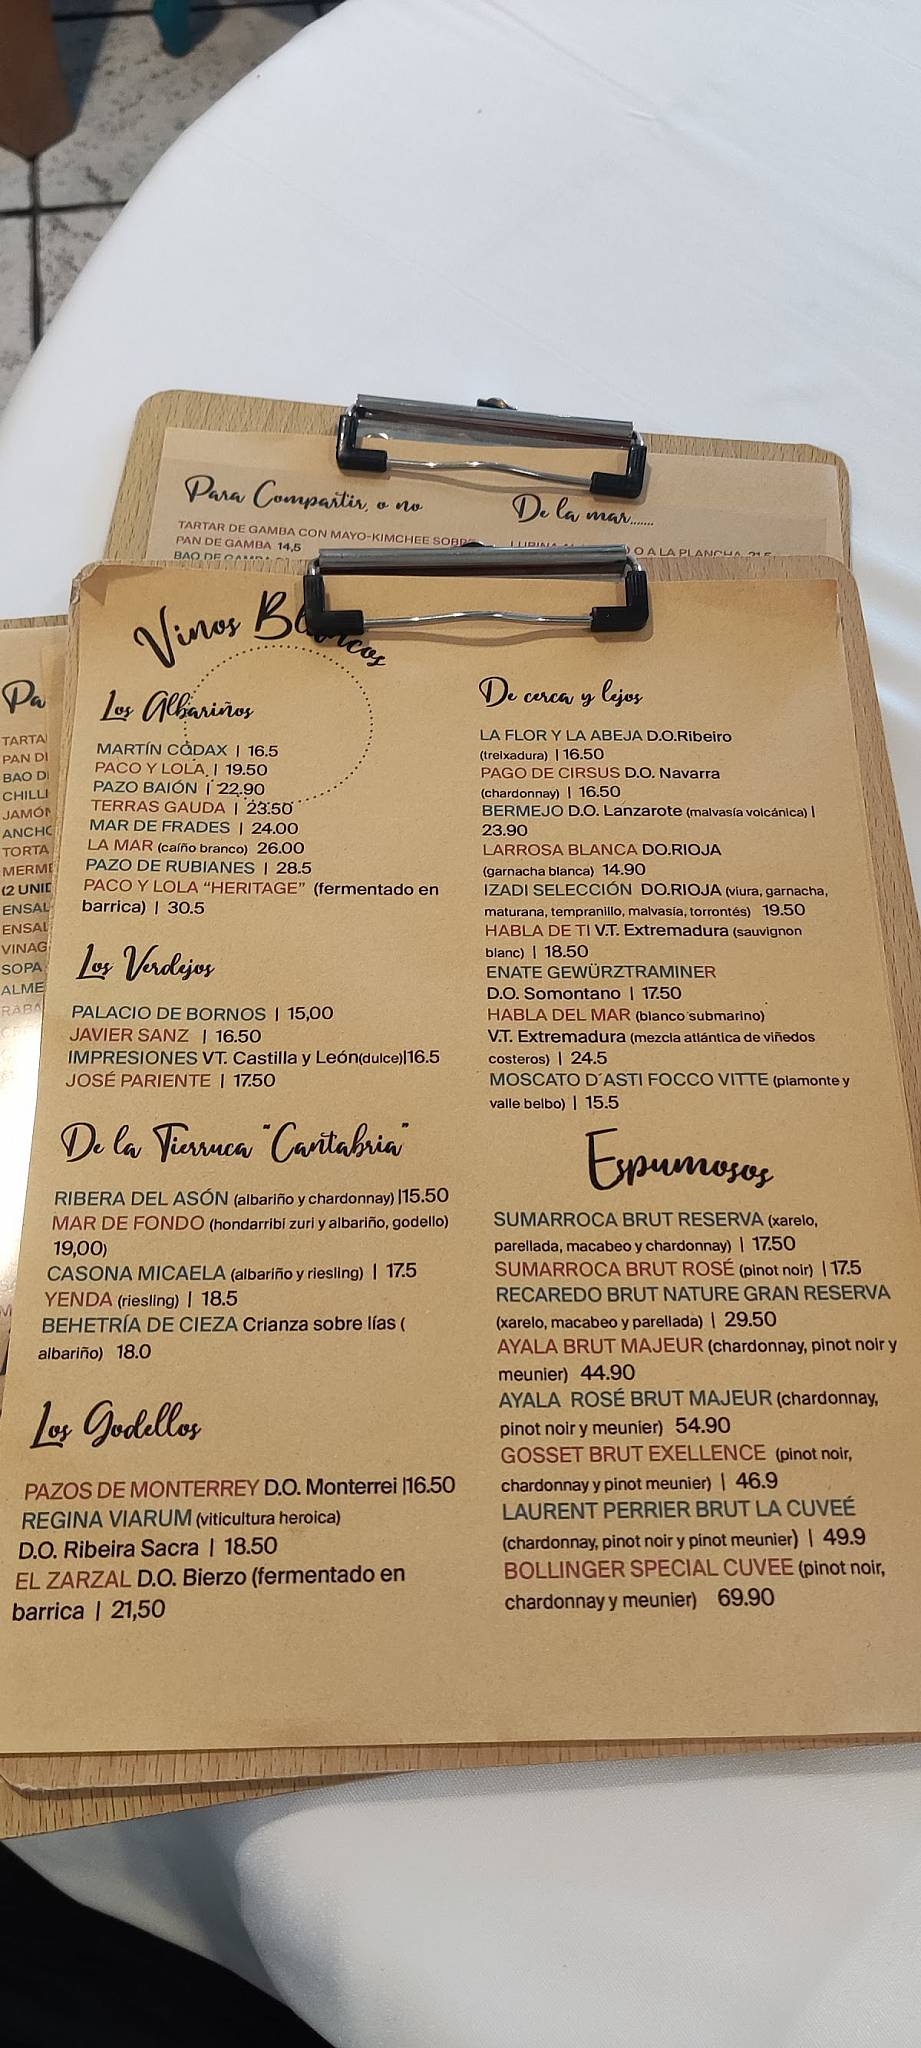 Para Compartir, o no
TARTAR DE GAMBA CON MAYO-KIMCHEE SOBRE
PAN DE GAMBA 14,5
BAO DE GAMBA
De la mar.......
LUBINA O A LA PLANCHA 21,5
Pa
TARTA
PAN DE
BAO D
CHILLI
JAMÓN
ANCHO
TORTA
MERME
(2 UNID
ENSAL
ENSAL
VINAG
SOPA
ALME
RABA
Vinos Blancos
Los Albariños
MARTÍN CÓDAX | 16.5
PACO Y LOLA | 19.50
PAZO BAIÓN | 22.90
TERRAS GAUDA | 23.50
MAR DE FRADES | 24.00
LA MAR (caíño branco) 26.00
PAZO DE RUBIANES | 28.5
PACO Y LOLA “HERITAGE” (fermentado en
barrica) | 30.5
Los Verdejos
PALACIO DE BORNOS | 15,00
JAVIER SANZ | 16.50
IMPRESIONES VT. Castilla y León(dulce)|16.5
JOSÉ PARIENTE | 17.50
De la Tierruca "Cantabria"
RIBERA DEL ASÓN (albariño y chardonnay) |15.50
MAR DE FONDO (hondarribi zuri y albariño, godello)
19,00)
CASONA MICAELA (albariño y riesling) | 17.5
YENDA (riesling) | 18.5
BEHETRÍA DE CIEZA Crianza sobre lías (
albariño) 18.0
Los Godellos
PAZOS DE MONTERREY D.O. Monterrei |16.50
REGINA VIARUM (viticultura heroica)
D.O. Ribeira Sacra | 18.50
EL ZARZAL D.O. Bierzo (fermentado en
barrica | 21,50
De cerca y lejos
LA FLOR Y LA ABEJA D.O.Ribeiro
(treixadura) | 16.50
PAGO DE CIRSUS D.O. Navarra
(chardonnay) | 16.50
BERMEJO D.O. Lanzarote (malvasía volcánica) |
23.90
LARROSA BLANCA DO.RIOJA
(garnacha blanca) 14.90
IZADI SELECCIÓN DO.RIOJA (viura, garnacha,
maturana, tempranillo, malvasía, torrontés) 19.50
HABLA DE TI V.T. Extremadura (sauvignon
blanc) | 18.50
ENATE GEWÜRZTRAMINER
D.O. Somontano | 17.50
HABLA DEL MAR (blanco submarino)
V.T. Extremadura (mezcla atlántica de viñedos
costeros) | 24.5
MOSCATO D´ASTI FOCCO VITTE (piamonte y
valle belbo) | 15.5
Espumosos
SUMARROCA BRUT RESERVA (xarelo,
parellada, macabeo y chardonnay) | 17.50
SUMARROCA BRUT ROSÉ (pinot noir) | 17.5
RECAREDO BRUT NATURE GRAN RESERVA
(xarelo, macabeo y parellada) | 29.50
AYALA BRUT MAJEUR (chardonnay, pinot noir y
meunier) 44.90
AYALA ROSÉ BRUT MAJEUR (chardonnay,
pinot noir y meunier) 54.90
GOSSET BRUT EXELLENCE (pinot noir,
chardonnay y pinot meunier) | 46.9
LAURENT PERRIER BRUT LA CUVEÉ
(chardonnay, pinot noir y pinot meunier) | 49.9
BOLLINGER SPECIAL CUVEE (pinot noir,
chardonnay y meunier) 69.90